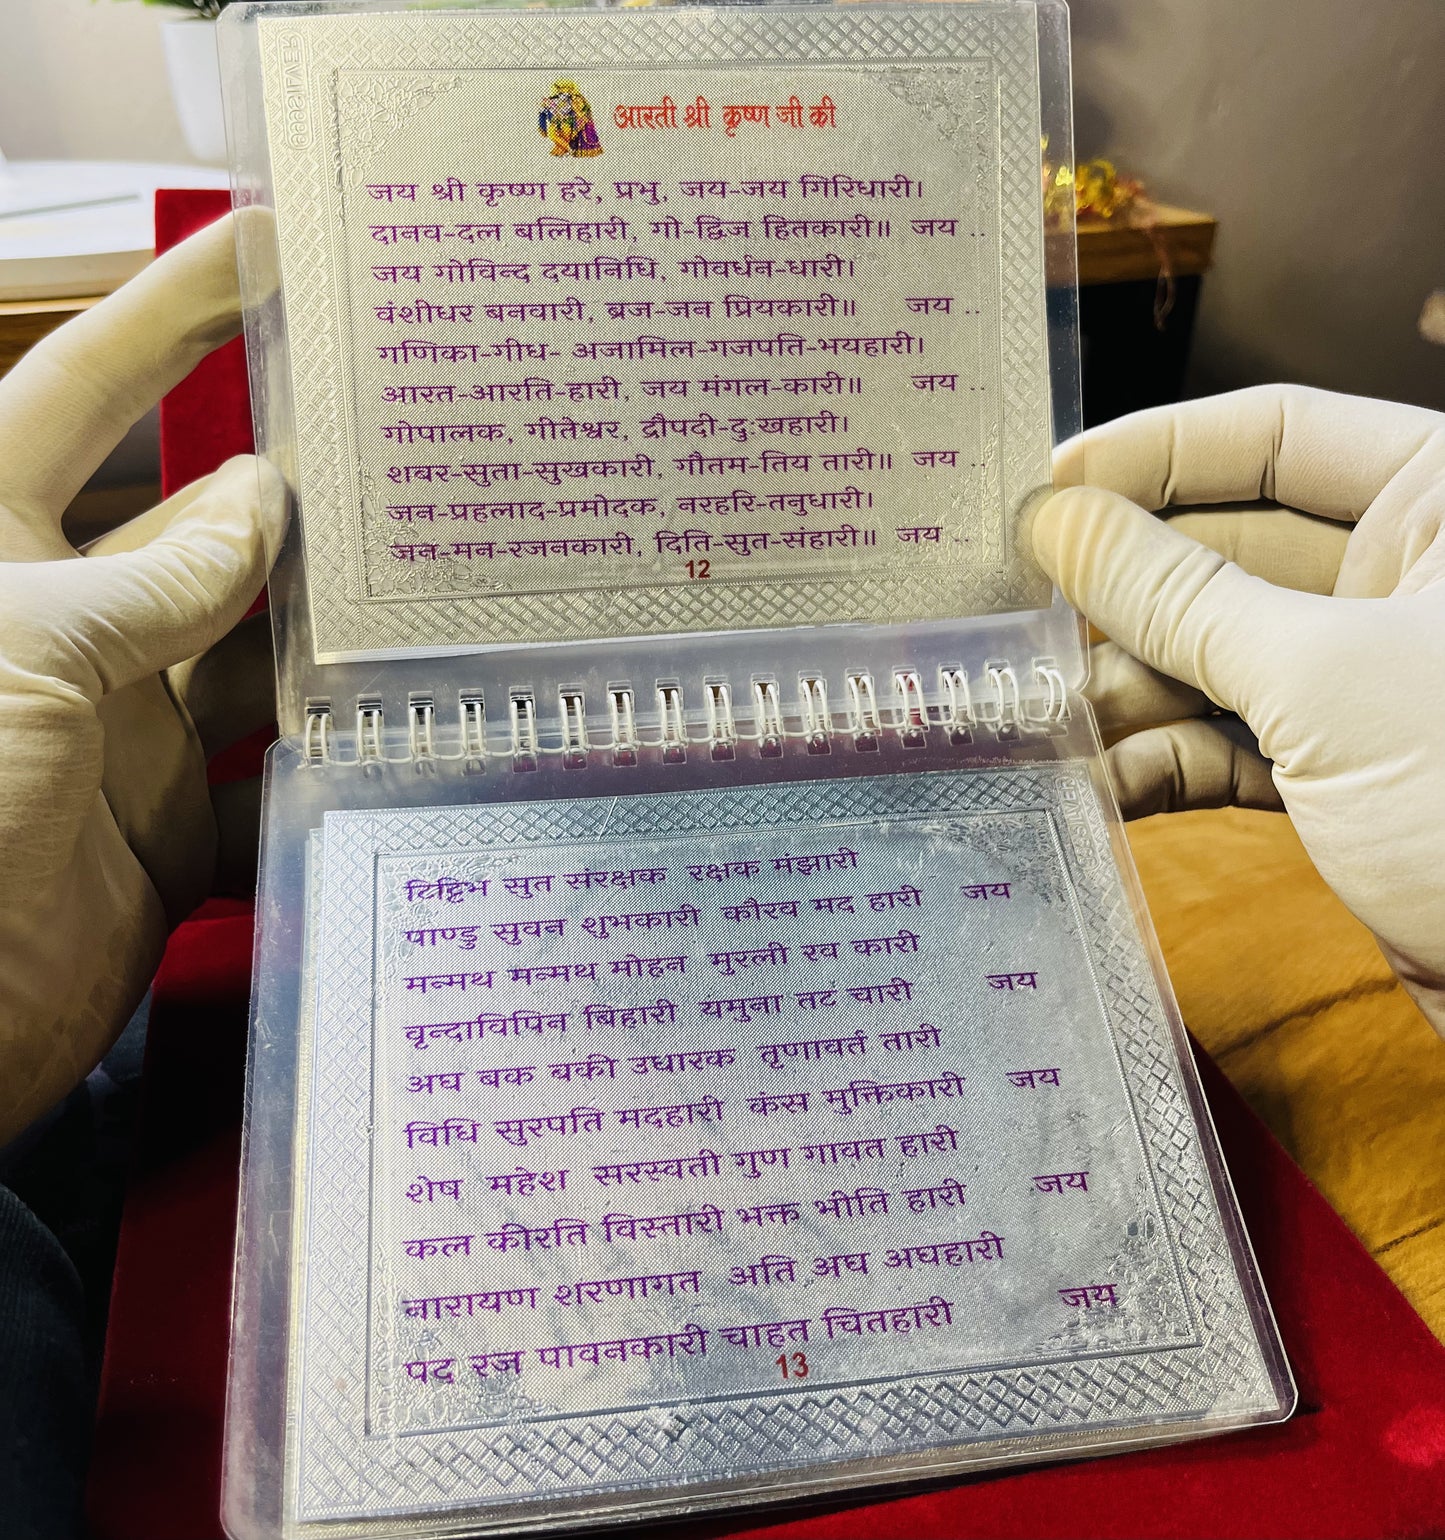 आरती श्री कृष्ण जी की
जय श्री कृष्ण हरे, प्रभु, जय-जय गिरिधारी।
दानव-दल बलिहारी, गो-द्विज हितकारी॥ जय ..
जय गोविन्द दयानिधि, गोवर्धन-धारी।
वंशीधर बनवारी, ब्रज-जन प्रियकारी॥ जय ..
गणिका-गीध- अजामिल-गजपति-भयहारी।
आरत-आरति-हारी, जय मंगल-कारी॥ जय ..
गोपालक, गीतेश्वर, द्रौपदी-दुःखहारी।
शबर-सुता-सुखकारी, गौतम-तिय तारी॥ जय ..
जन-प्रहलाद-प्रमोदक, नरहरि-तनुधारी।
जन-मन-रजनकारी, दिति-सुत-संहारी॥ जय ..
12
999 SILVER
टिट्टिभ सुत संरक्षक रक्षक मंझारी
पाण्डु सुवन शुभकारी कौरव मद हारी जय
मन्मथ मन्मथ मोहन मुरली रव कारी
वृन्दाविपिन बिहारी यमुना तट चारी जय
अघ बक बकी उधारक तृणावर्त तारी
विधि सुरपति मदहारी कंस मुक्तिकारी जय
शेष महेश सरस्वती गुण गावत हारी
कल कीरति विस्तारी भक्त भीति हारी जय
नारायण शरणागत अति अघ अघहारी
पद रज पावनकारी चाहत चितहारी जय
13